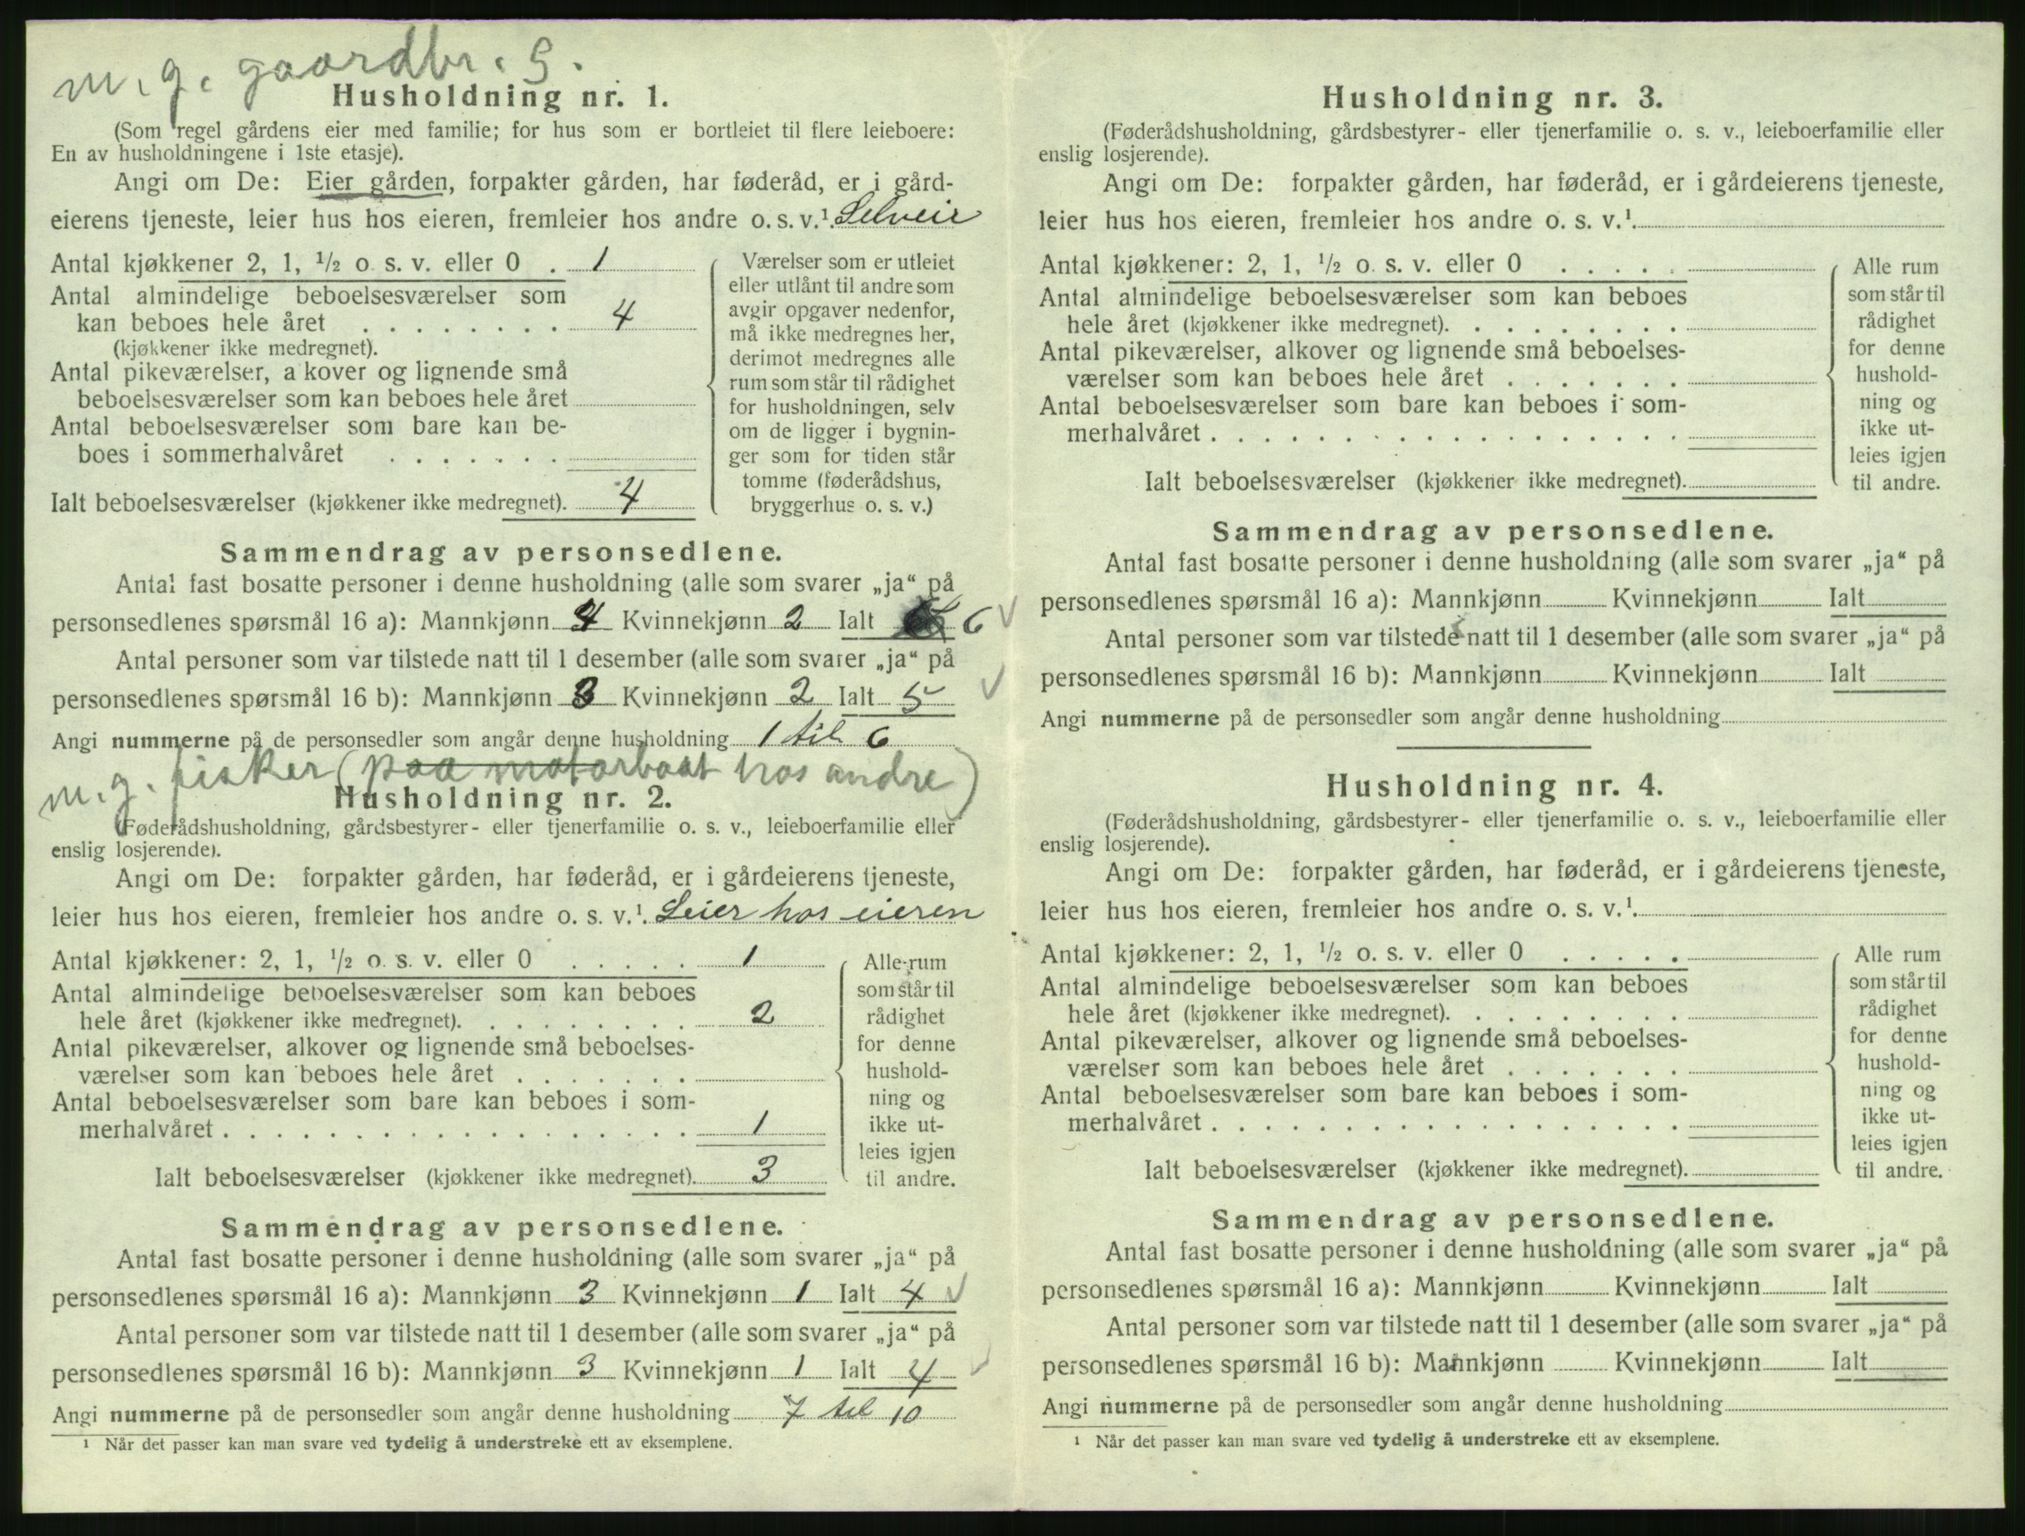 m. g. gaardbr. S.
Husholdning nr. 1.
(Som regel gårdens eier med familie; for hus som er bortleiet til flere leieboere:
En av husholdningene i 1ste etasje).
Angi om De: Eier gården, forpakter gården, har føderåd, er i gård-
eierens tjeneste, leier hus hos eieren, fremleier hos andre o. s. v.¹ Selveir
Antal kjøkkener 2, 1, ½ o s. v. eller 0 . 1
Antal almindelige beboelsesværelser som
kan beboes hele året . . . . . . . . 4
(kjøkkener ikke medregnet).
Antal pikeværelser, a kover og lignende små
beboelsesværelser som kan beboes hele året
Antal beboelsesværelser som bare kan be-
boes i sommerhalvåret . . . . . . .
Ialt beboelsesværelser (kjøkkener ikke medregnet). 4
Værelser som er utleiet
eller utlånt til andre som
avgir opgaver nedenfor,
må ikke medregnes her,
derimot medregnes alle
rum som står til rådighet
for husholdningen, selv
om de ligger i bygnin-
ger som for tiden står
tomme (føderådshus,
bryggerhus o. s. v.)
Sammendrag av personsedlene.
Antal fast bosatte personer i denne husholdning (alle som svarer „ja“ på
personsedlenes spørsmål 16 a): Mannkjønn 4 Kvinnekjønn 2 Ialt 6 ✓
Antal personer som var tilstede natt til 1 desember (alle som svarer „ja“ på
personsedlenes spørsmål 16 b): Mannkjønn 3 Kvinnekjønn 2 Ialt 5 ✓
Angi nummerne på de personsedler som angår denne husholdning 1 til 6
m. g. fisker (paa motorbaat hos andre)
Husholdning nr. 2.
(Føderådshusholdning, gårdsbestyrer- eller tjenerfamilie o. s. v., leieboerfamilie eller
enslig losjerende).
Angi om De: forpakter gården, har føderåd, er i gårdeierens tjeneste,
leier hus hos eieren, fremleier hos andre o. s. v.¹ Leier hos eieren
Antal kjøkkener: 2, 1, ½ o. s. v. eller 0 . . . . . 1
Antal almindelige beboelsesværelser som kan beboes
hele året (kjøkkener ikke medregnet). . . . . . . . . 2
Antal pikeværelser, alkover og lignende små beboelses-
værelser som kan beboes hele året . . . . . . .
Antal beboelsesværelser som bare kan beboes i som-
merhalvåret . . . . . . . . . . . . . . . . . . 1
Ialt beboelsesværelser (kjøkkener ikke medregnet). 3
Alle rum
som står til
rådighet
for denne
hushold-
ning og
ikke ut-
leies igjen
til andre.
Sammendrag av personsedlene.
Antal fast bosatte personer i denne husholdning (alle som svarer „ja“ på
personsedlenes spørsmål 16 a): Mannkjønn 3 Kvinnekjønn 1 Ialt 4 ✓
Antal personer som var tilstede natt til 1 desember (alle som svarer „ja“ på
personsedlenes spørsmål 16 b): Mannkjønn 3 Kvinnekjønn 1 Ialt 4 ✓
Angi nummerne på de personsedler som angår denne husholdning 7 til 10
¹ Når det passer kan man svare ved tydelig å understreke ett av eksemplene.
Husholdning nr. 3.
(Føderådshusholdning, gårdsbestyrer- eller tjenerfamilie o. s. v., leieboerfamilie eller
enslig losjerende).
Angi om De: forpakter gården, har føderåd, er i gårdeierens tjeneste,
leier hus hos eieren, fremleier hos andre o. s. v.¹
Antal kjøkkener: 2, 1, ½ o. s. v. eller 0 . . . . .
Antal almindelige beboelsesværelser som kan beboes
hele året (kjøkkener ikke medregnet). . . . . . . . .
Antal pikeværelser, alkover og lignende små beboelses-
værelser som kan beboes hele året . . . . . . .
Antal beboelsesværelser som bare kan beboes i som-
merhalvåret . . . . . . . . . . . . . . . . . .
Ialt beboelsesværelser (kjøkkener ikke medregnet).
Alle rum
som står til
rådighet
for denne
hushold-
ning og
ikke ut-
leies igjen
til andre.
Sammendrag av personsedlene.
Antal fast bosatte personer i denne husholdning (alle som svarer „ja“ på
personsedlenes spørsmål 16 a): Mannkjønn Kvinnekjønn Ialt
Antal personer som var tilstede natt til 1 desember (alle som svarer „ja“ på
personsedlenes spørsmål 16 b): Mannkjønn Kvinnekjønn Ialt
Angi nummerne på de personsedler som angår denne husholdning
Husholdning nr. 4.
(Føderådshusholdning, gårdsbestyrer- eller tjenerfamilie o. s. v., leieboerfamilie eller
enslig losjerende).
Angi om De: forpakter gården, har føderåd, er i gårdeierens tjeneste,
leier hus hos eieren, fremleier hos andre o. s. v.¹
Antal kjøkkener: 2, 1, ½ o. s. v. eller 0 . . . . .
Antal almindelige beboelsesværelser som kan beboes
hele året (kjøkkener ikke medregnet). . . . . . . . .
Antal pikeværelser, alkover og lignende små beboelses-
værelser som kan beboes hele året . . . . . . .
Antal beboelsesværelser som bare kan beboes i som-
merhalvåret . . . . . . . . . . . . . . . . . .
Ialt beboelsesværelser (kjøkkener ikke medregnet).
Alle rum
som står til
rådighet
for denne
hushold-
ning og
ikke ut-
leies igjen
til andre.
Sammendrag av personsedlene.
Antal fast bosatte personer i denne husholdning (alle som svarer „ja“ på
personsedlenes spørsmål 16 a): Mannkjønn Kvinnekjønn Ialt
Antal personer som var tilstede natt til 1 desember (alle som svarer „ja“ på
personsedlenes spørsmål 16 b): Mannkjønn Kvinnekjønn Ialt
Angi nummerne på de personsedler som angår denne husholdning
¹ Når det passer kan man svare ved tydelig å understreke ett av eksemplene.